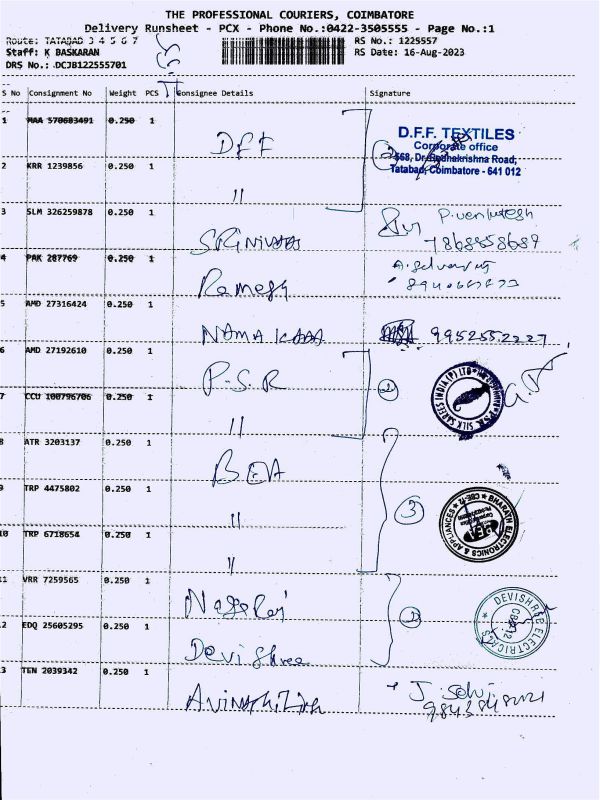 THE PROFESSIONAL COURIERS, COIMBATORE
Delivery Runsheet - PCX - Phone No.:0422-3505555 - Page No.:1
Route: TATABAD 3 4 5 6 7
RS No.: 1225557
Staff: K BASKARAN
RS Date: 16-Aug-2023
DRS No.: DCJB122555701
S No Consignment No Weight PCS Consignee Details Signature
1 MAA 570683491 0.250 1 DFF
D.F.F. TEXTILES
Corporate office
568, Dr. Radhakrishna Road,
Tatabad, Coimbatore - 641 012
2 KRR 1239856 0.250 1 "
3 SLM 326259878 0.250 1 P. Venkatesh
4 PAK 287769 0.250 1 Ramesh
5 AMD 27316424 0.250 1 9952552227
6 AMD 27192610 0.250 1 P.S.R
SILK SAREES INDIA (P) LTD
7 CCU 100796706 0.250 1 "
8 ATR 3203137 0.250 1 BEA
9 TRP 4475802 0.250 1 " 3
BHARATH ELECTRONICS & APPLIANCES
BEA
10 TRP 6718654 0.250 1 "
11 VRR 7259565 0.250 1 Nagaraj 2
DEVISHREE ELECTRICALS
12 EDQ 25605295 0.250 1 Devi Shree
13 TEN 2039342 0.250 1 J. Selvi